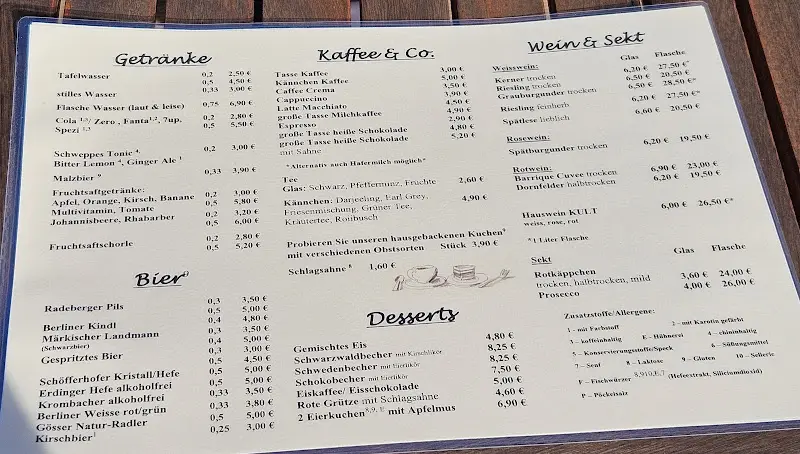 Getränke
Tafelwasser 0,2 2,50 €
0,5 4,50 €
stilles Wasser 0,33 3,00 €
Flasche Wasser (laut & leise) 0,75 6,90 €
Cola 1,3/ Zero , Fanta1,2, 7up, 0,2 2,80 €
Spezi 1,3 0,5 5,50 €
Schweppes Tonic 4, 0,2 3,00 €
Bitter Lemon 4, Ginger Ale 1
Malzbier 9 0,33 3,90 €
Fruchtsaftgetränke:
Apfel, Orange, Kirsch, Banane 0,2 3,00 €
Multivitamin, Tomate 0,5 5,80 €
Johannisbeere, Rhabarber 0,2 3,20 €
0,5 6,00 €
Fruchtsaftschorle 0,2 2,80 €
0,5 5,20 €
Bier9
Radeberger Pils 0,3 3,50 €
0,5 5,00 €
Berliner Kindl 0,4 4,80 €
Märkischer Landmann 0,3 3,50 €
(Schwarzbier) 0,4 5,00 €
Gespritztes Bier 0,3 3,00 €
0,5 4,50 €
Schöfferhofer Kristall/Hefe 0,5 5,00 €
Erdinger Hefe alkoholfrei 0,5 5,00 €
Krombacher alkoholfrei 0,33 3,50 €
Berliner Weisse rot/grün 0,33 3,80 €
Gösser Natur-Radler 0,5 5,00 €
Kirschbier1 0,25 3,00 €
Kaffee & Co.
Tasse Kaffee 3,00 €
Kännchen Kaffee 5,00 €
Caffee Crema 3,50 €
Cappuccino 3,90 €
Latte Macchiato 4,50 €
große Tasse Milchkaffee 4,90 €
Espresso 2,90 €
große Tasse heiße Schokolade 4,80 €
große Tasse heiße Schokolade 5,20 €
mit Sahne
*Alternativ auch Hafermilch möglich*
Tee
Glas: Schwarz, Pfefferminz, Früchte 2,60 €
Kännchen: Darjeeling, Earl Grey, 4,90 €
Friesenmischung, Grüner Tee,
Kräutertee, Rotibusch
Probieren Sie unseren hausgebackenen Kuchen9
mit verschiedenen Obstsorten Stück 3,90 €
Schlagsahne 8 1,60 €
Desserts
Gemischtes Eis 4,80 €
Schwarzwaldbecher mit Kirschlikör 8,25 €
Schwedenbecher mit Eierlikör 8,25 €
Schokobecher mit Eierlikör 7,50 €
Eiskaffee/ Eisschokolade 5,00 €
Rote Grütze mit Schlagsahne 4,60 €
2 Eierkuchen8,9, E mit Apfelmus 6,90 €
Wein & Sekt
Weisswein: Glas Flasche
Kerner trocken 6,20 € 27,50 €*
Riesling trocken 6,50 € 20,50 €
Grauburgunder trocken 6,50 € 28,50 €*
Riesling feinherb 6,20 € 27,50 €*
Spätlese lieblich 6,60 € 20,50 €
Rosewein:
Spätburgunder trocken 6,20 € 19,50 €
Rotwein:
Barrique Cuvee trocken 6,90 € 23,00 €
Dornfelder halbtrocken 6,20 € 19,50 €
Hauswein KULT 6,00 € 26,50 €*
weiss, rose, rot
*1 Liter Flasche
Sekt Glas Flasche
Rotkäppchen
trocken, halbtrocken, mild 3,60 € 24,00 €
Prosecco 4,00 € 26,00 €
Zusatzstoffe/Allergene:
1 - mit Farbstoff 2 – mit Karotin gefärbt
3 – koffeinhaltig E – Hühnerei 4 - chininhaltig
5 – Konservierungsstoffe/Speck 6 – Süßungsmittel
7 – Senf 8 - Laktose 9 – Gluten 10 - Sellerie
F – Fischwürzer 8,9,10,E,7 (Hefeextrakt, Siliciumdioxid)
P – Pöckelsalz